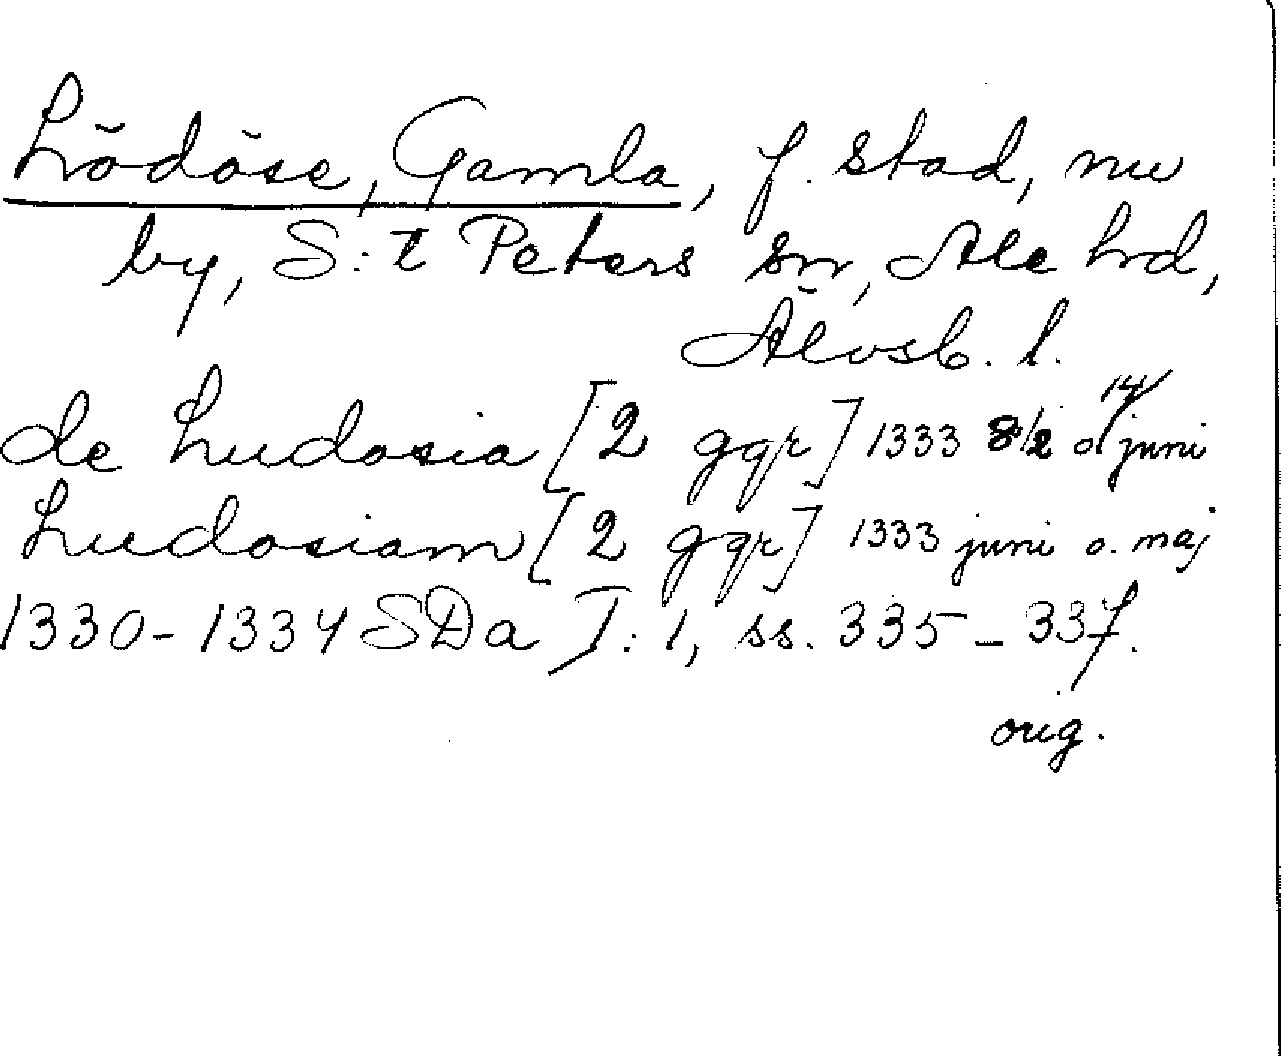 Lödöse, Gamla, f. stad, nu
by, S:t Peters sn, Ale hd,
Älvsb. l.
de Ludosia [2 ggr] 1333 8/2 o 14/ juni
Ludosiam [2 ggr] 1333 juni o. maj
1330-1334 SDa I:1, ss. 335-337.
orig.